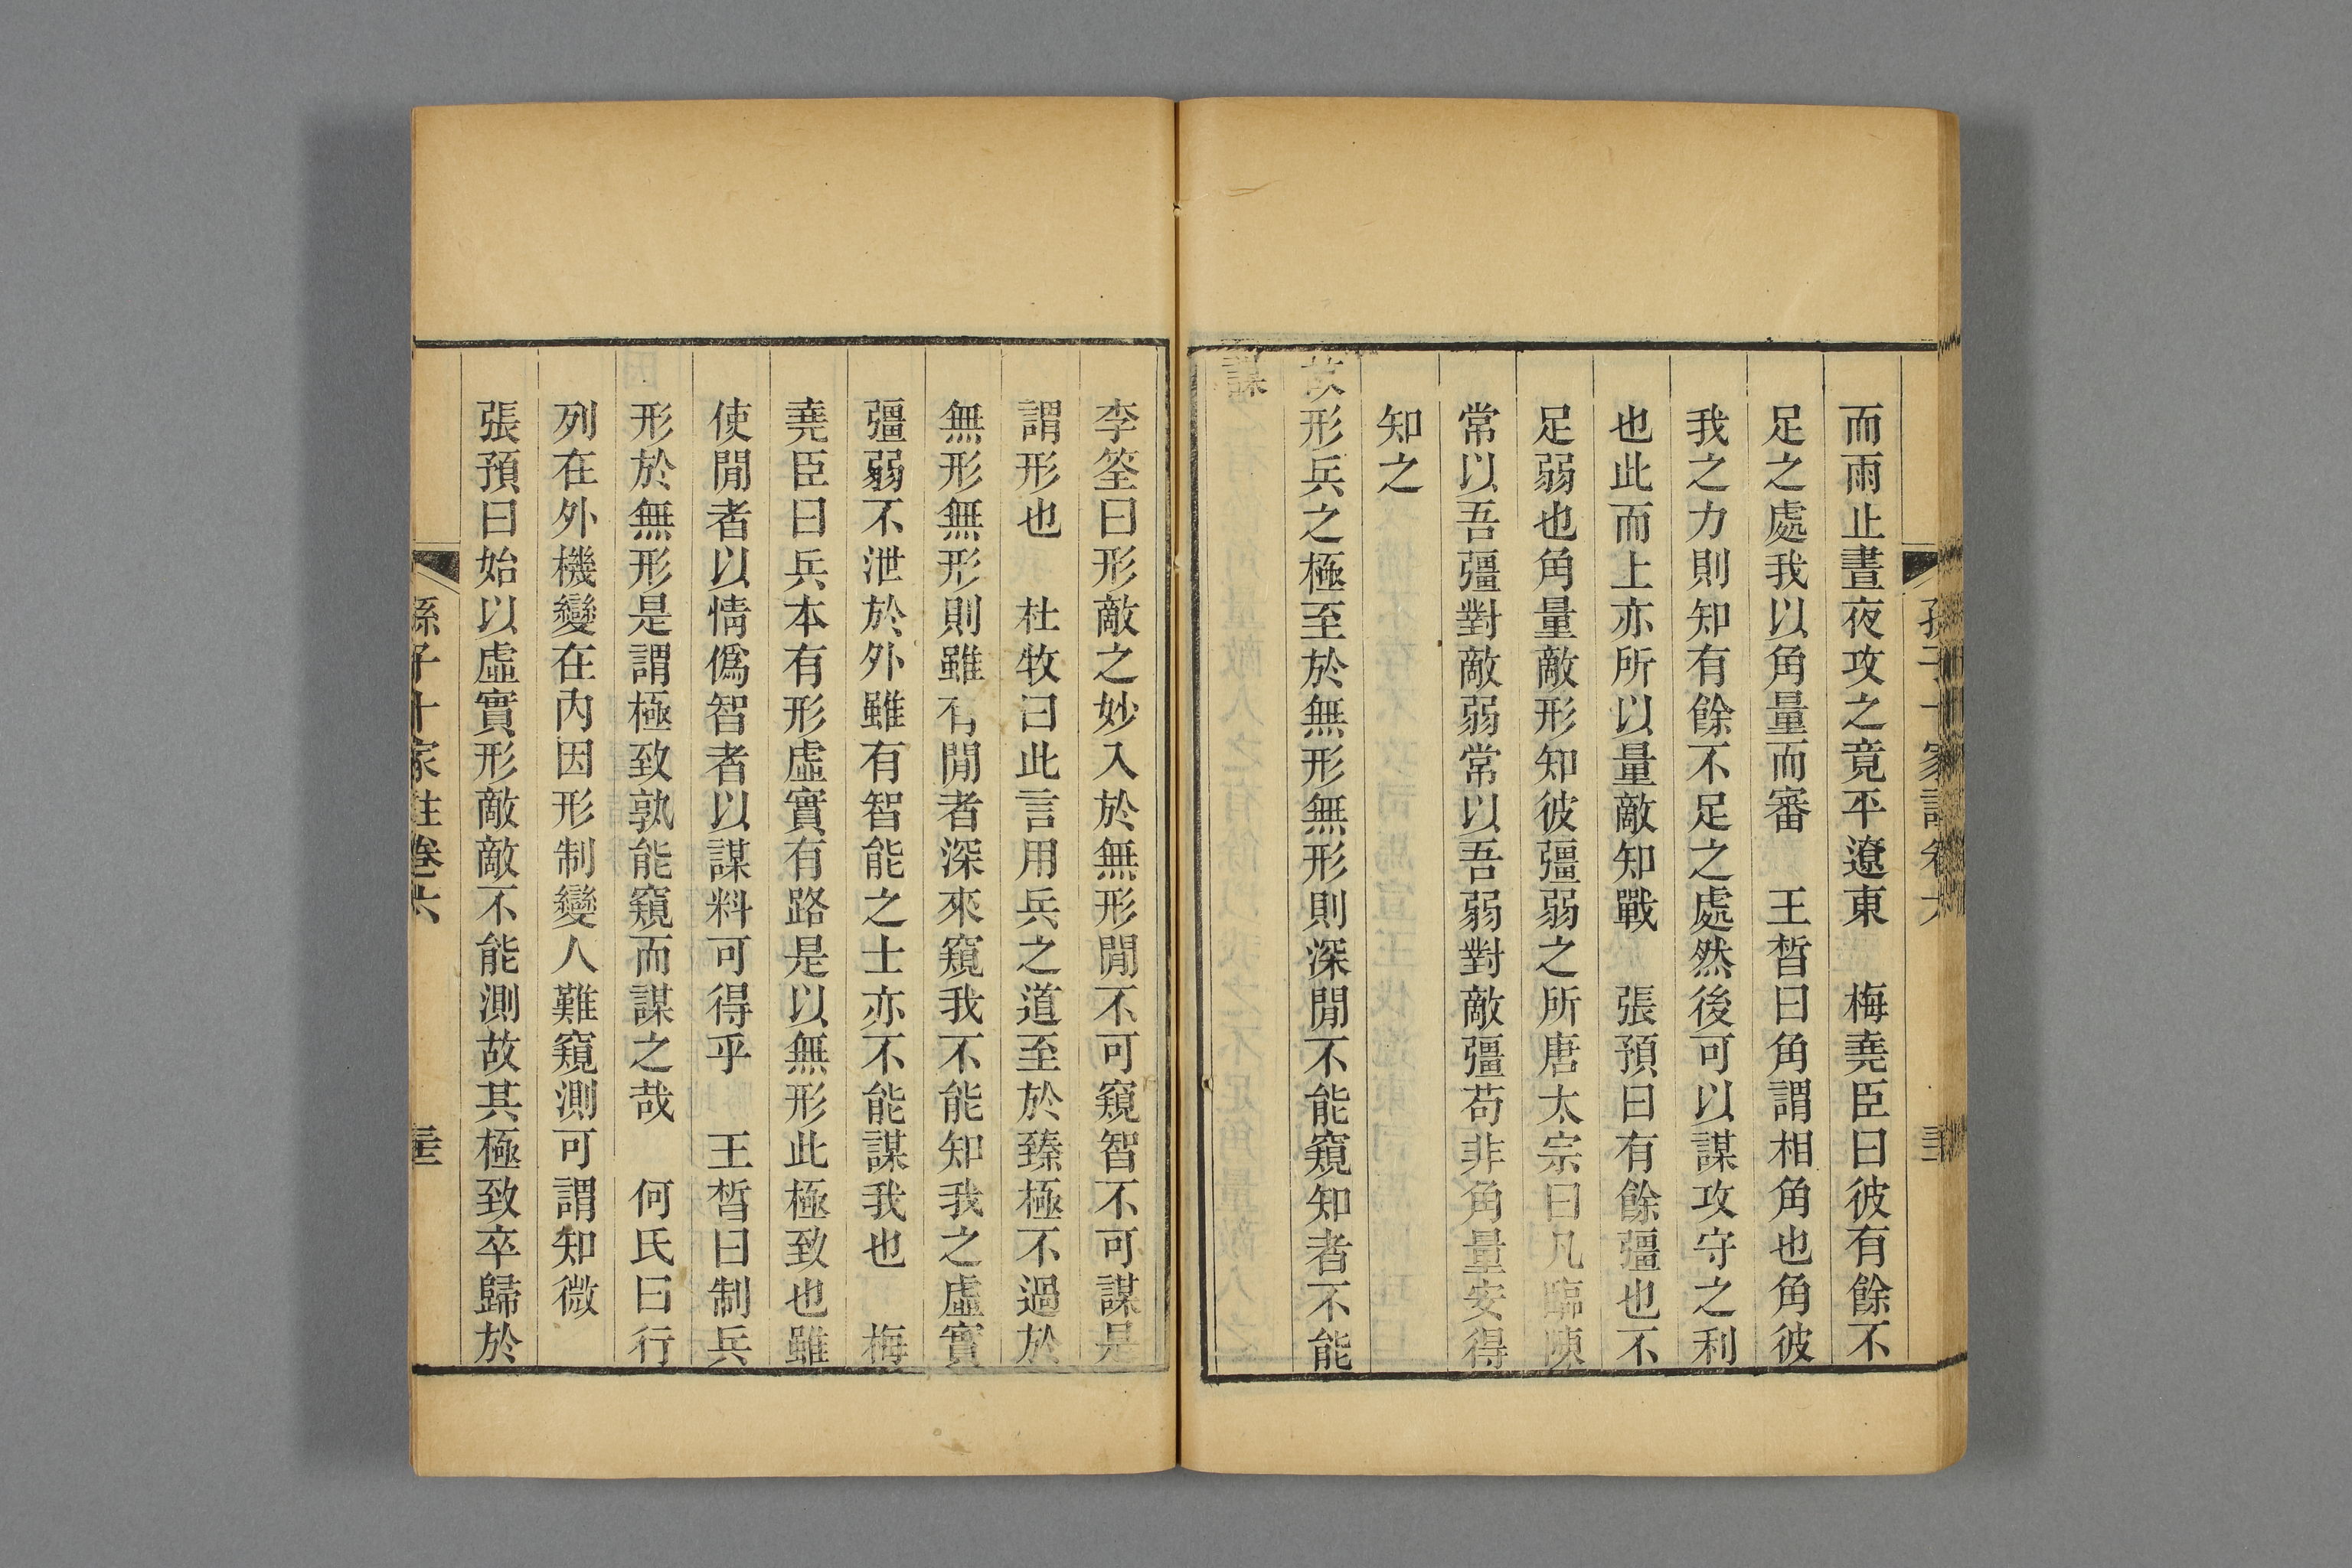 而雨止晝夜攻之竟平遼東　梅堯臣曰彼有餘不
足之處我以角量而審　王晳曰角謂相角也角彼
我之力則知有餘不足之處然後可以謀攻守之利
也此而上亦所以量敵知戰　張預曰有餘彊也不
足弱也角量敵形知彼彊弱之所唐太宗曰凡臨陳
常以吾彊對敵弱常以吾弱對敵彊苟非角量安得
知之
故形兵之極至於無形無形則深閒不能窺知者不能
謀
李筌曰形敵之妙入於無形閒不可窺智不可謀是
謂形也　杜牧曰此言用兵之道至於臻極不過於
無形無形則雖有閒者深來窺我不能知我之虛實
彊弱不泄於外雖有智能之士亦不能謀我也　梅
堯臣曰兵本有形虛實有路是以無形此極致也雖
使閒者以情僞智者以謀料可得乎　王晳曰制兵
形於無形是謂極致孰能窺而謀之哉　何氏曰行
列在外機變在內因形制變人難窺測可謂知微
張預曰始以虛實形敵敵不能測故其極致卒歸於
孫子十家註卷六